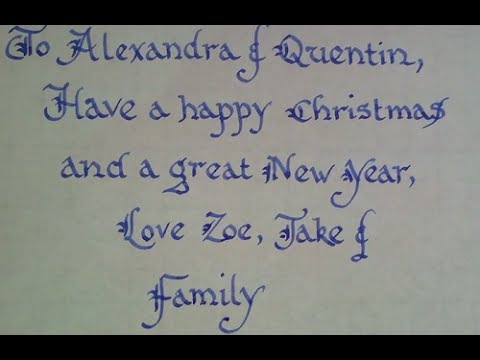 To Alexandra & Quentin,
Have a happy Christmas
and a great New Year,
Love Zoe, Jake &
Family